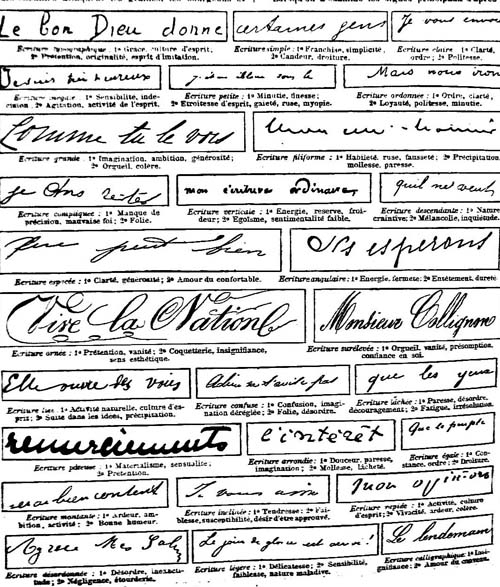 Le bon Dieu donne
certaines gens
Je vous envoie
Ecriture typographique : 1º Grace, culture d'esprit;
2º Prétention, originalité, esprit d'imitation.
Ecriture simple : 1º Franchise, simplicité;
2º Candeur, droiture.
Ecriture claire : 1º Clarté,
ordre; 2º Politesse.
Je suis très heureux
Mais nous irons
Ecriture inégale : 1º Sensibilité, indé-
cision; 2º Agitation, activité de l'esprit.
Ecriture petite : 1º Minutie, finesse;
2º Etroitesse d'esprit, gaieté, ruse, myopie.
Ecriture ordonnée : 1º Ordre, clarté,
2º Loyauté, politesse, minutie.
Comme tu le vois
Ecriture grande : 1º Imagination, ambition, générosité;
2º Orgueil, colère.
Ecriture filiforme : 1º Habileté, ruse, fausseté; 2º Précipitation
mollesse, paresse.
je
mon écriture ordinaire,
qu'il ne veut
Ecriture compliquée : 1º Manque de
précision, mauvaise foi; 2º Folie.
Ecriture verticale : 1º Energie, reserve, froi-
deur; 2º Egoïsme, sentimentalité faible.
Ecriture descendante : 1º Nature
craintive; 2º Mélancolie, inquiétude.
peut bien
Ils esperons
Ecriture espacée : 1º Clarté, générosité; 2º Amour du confortable.
Ecriture angulaire : 1º Energie, fermeté; 2º Entêtement, dureté
Vive la Nation
Monsieur Collignon
Ecriture ornée : 1º Prétention, vanité; 2º Coquetterie, insignifiance,
sens esthétique.
Ecriture surélevée : 1º Orgueil, vanité, présomption,
confiance en soi.
Elle ouvre des voies
que les yeux
Ecriture liée : 1º Activité naturelle, culture d'es-
prit; 2º Suite dans les idées, précipitation.
Ecriture confuse : 1º Confusion, imagi-
nation déréglée; 2º Folie, désordre.
Ecriture lâchée : 1º Paresse, désordre,
découragement; 2º Fatigue, irrésolution.
remerciements
l'intérêt
Que le peuple
Ecriture pâteuse : 1º Materialisme, sensualité;
2º Prétention.
Ecriture arrondie : 1º Douceur, paresse,
imagination; 2º Mollesse, lâcheté.
Ecriture égale : 1º Con-
stance, ordre; 2º Droiture.
serai bien content
Je vous
mon opinion
Ecriture montante : 1º Ardeur, am-
bition, activité; 2º Bonne humeur.
Ecriture inclinée : 1º Tendresse; 2º Fai-
blesse, susceptibilité, désir d'être approuvé.
Ecriture rapide : 1º Activité, culture
d'esprit; 2º Vivacité, ardeur, colère.
Agréez Mes Salu
Le jour de gloire est arrivé!
Le lendemain
Ecriture désordonnée : 1º Désordre, inexacti-
tude; 2º Négligence, étourderie.
Ecriture légère : 1º Délicatesse; 2º Sensibilité,
faiblesse, nature maladive.
Ecriture calligraphique : 1º Insi-
gnifiance; 2º Amour du